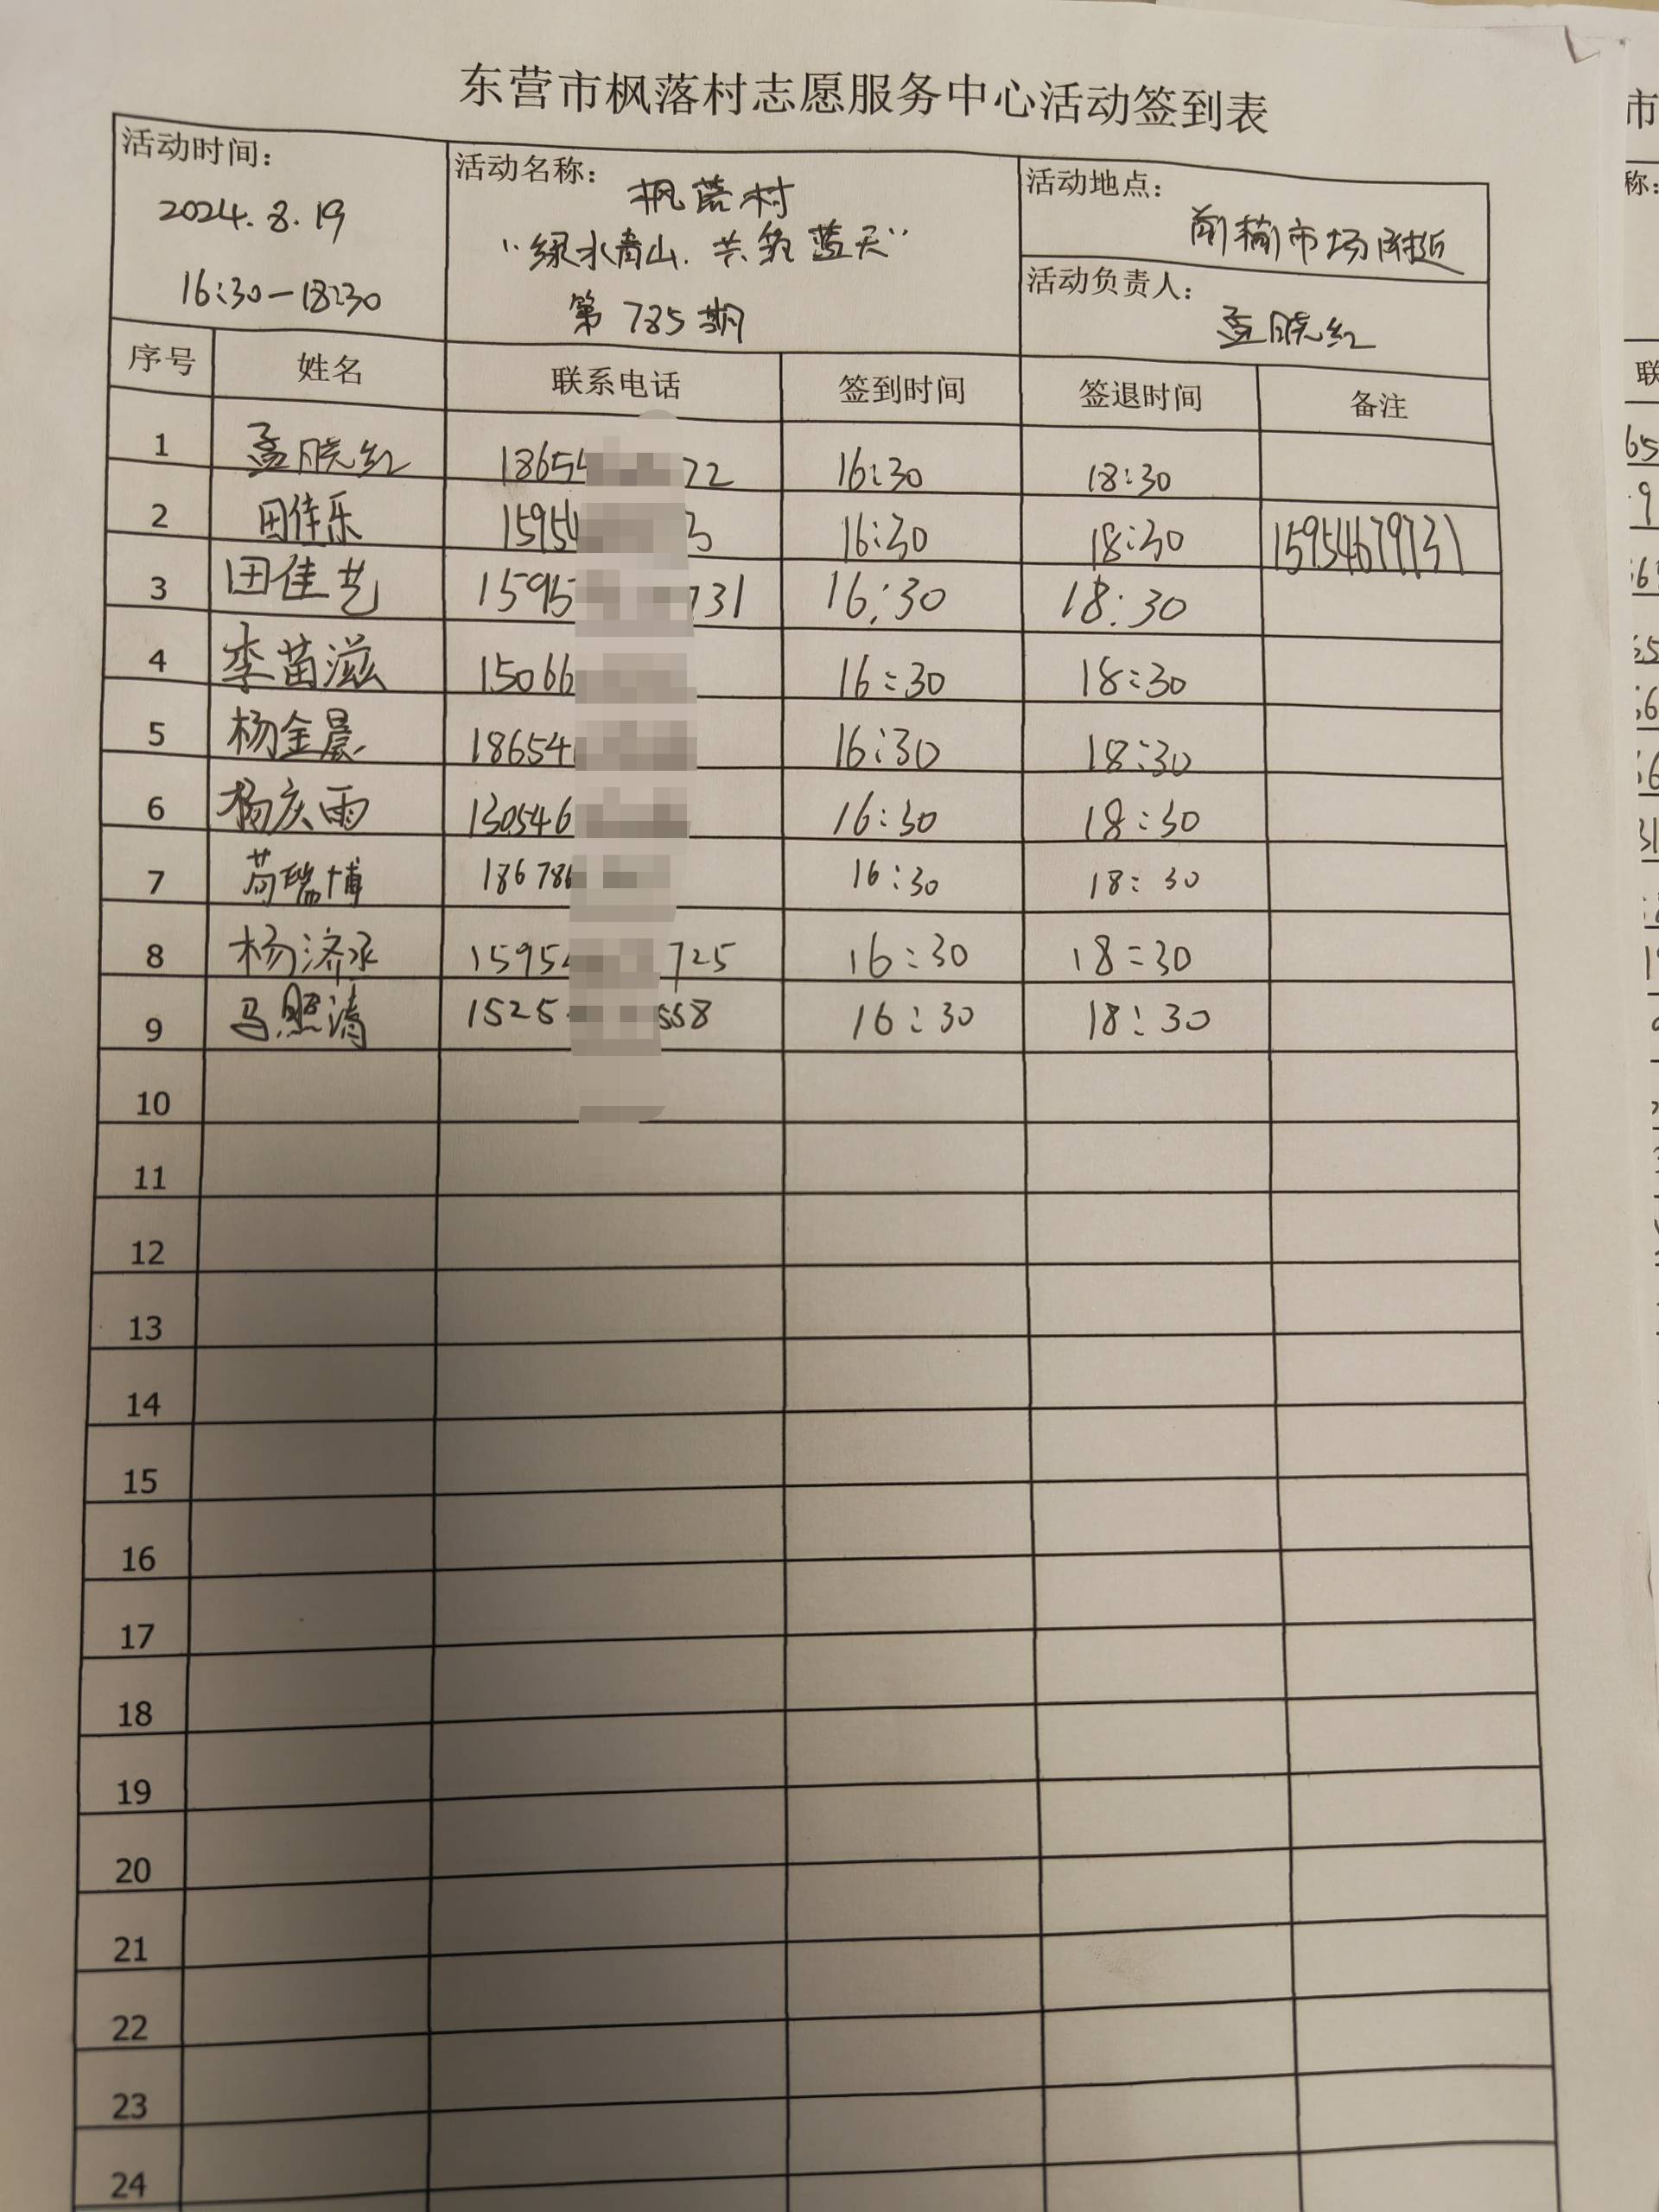 东营市枫落村志愿服务中心活动签到表
活动时间：
2024.8.19
16:30—18:30
活动名称：
枫落村
“绿水青山.共筑蓝天”
第785期
活动地点：
市场附近
活动负责人：
孟晓红
序号 姓名 联系电话 签到时间 签退时间 备注
1 孟晓红 18654 72 16:30 18:30
2 田佳乐 15954 3 16:30 18:30 15954679731
3 田佳艺 1595 731 16:30 18:30
4 李苗滋 15066 16:30 18:30
5 杨金晨 18654 16:30 18:30
6 杨庆雨 130546 16:30 18:30
7 苟瑞博 186786 16:30 18:30
8 杨济永 1595 725 16:30 18:30
9 马熙清 1525 558 16:30 18:30
10
11
12
13
14
15
16
17
18
19
20
21
22
23
24